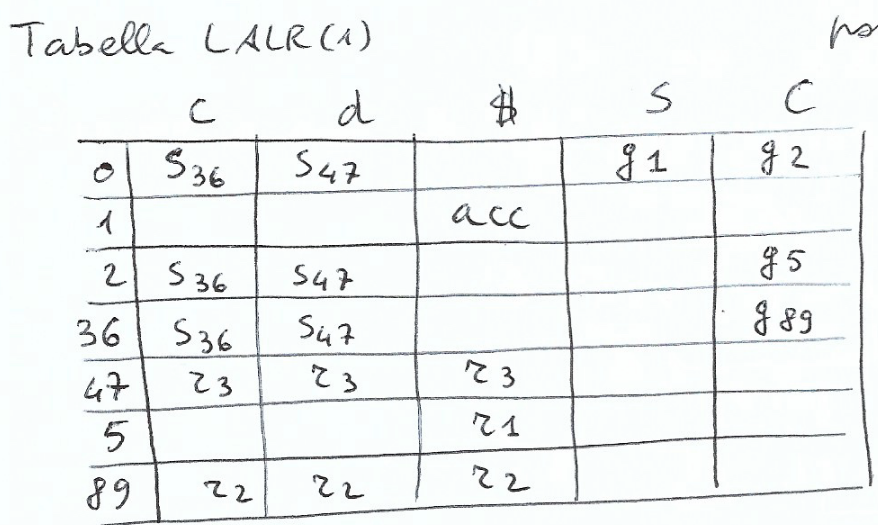 Tabella LALR(1)
c d $ S C
0 S36 S47 g1 g2
1 acc
2 S36 S47 g5
36 S36 S47 g89
47 r3 r3 r3
5 r1
89 r2 r2 r2